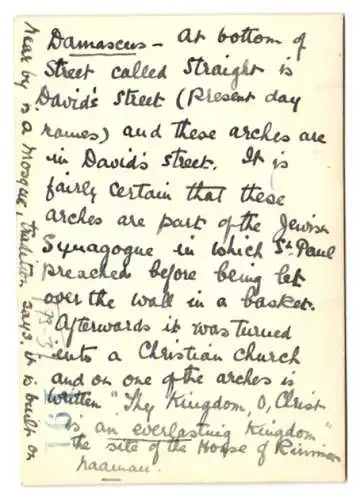 Damascus – At bottom of
Street called Straight is
David's Street (Present day
names) and these arches are
in David's Street. It is
fairly certain that these
arches are part of the Jewish
Synagogue in which St. Paul
preached before being let
over the wall in a basket.
Afterwards it was turned
into a Christian church
and on one of the arches is
written "Thy Kingdom, O, Christ
is an everlasting Kingdom"
near by is a Mosque, tradition says, it is built on
the site of the House of Rimmon
Naaman.